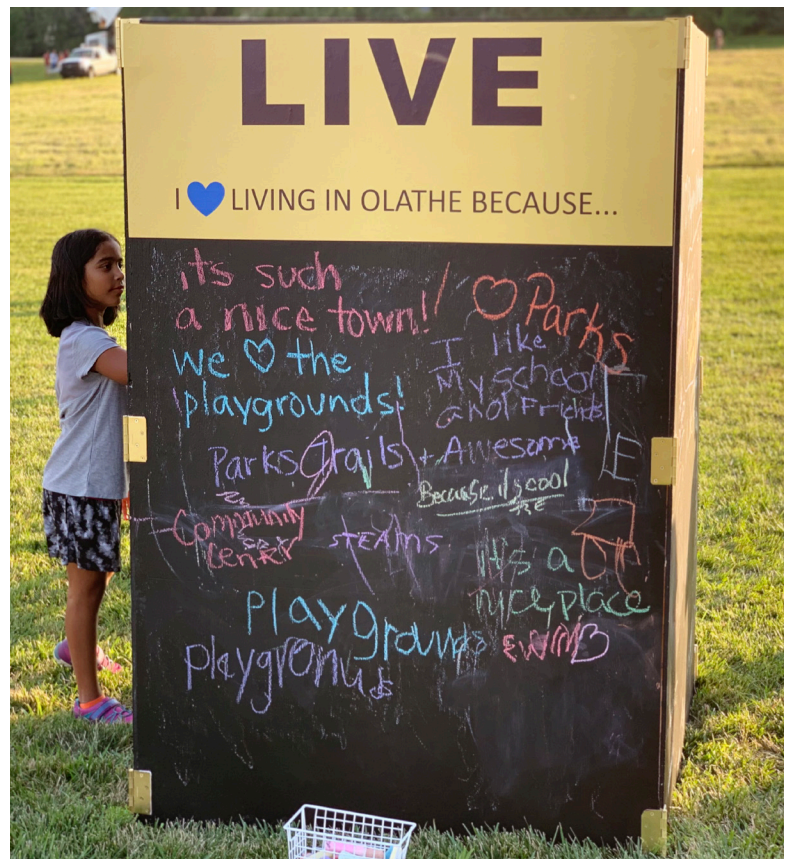 LIVE
I 💙 LIVING IN OLATHE BECAUSE...
its such
a nice town!!
♡ Parks
we ♡ the
playgrounds!
I like
My school
and Friends
Parks trails + Awesome
Because it's cool
Community
Center
steams
it's a
nice place
playgrounds
playgronuds